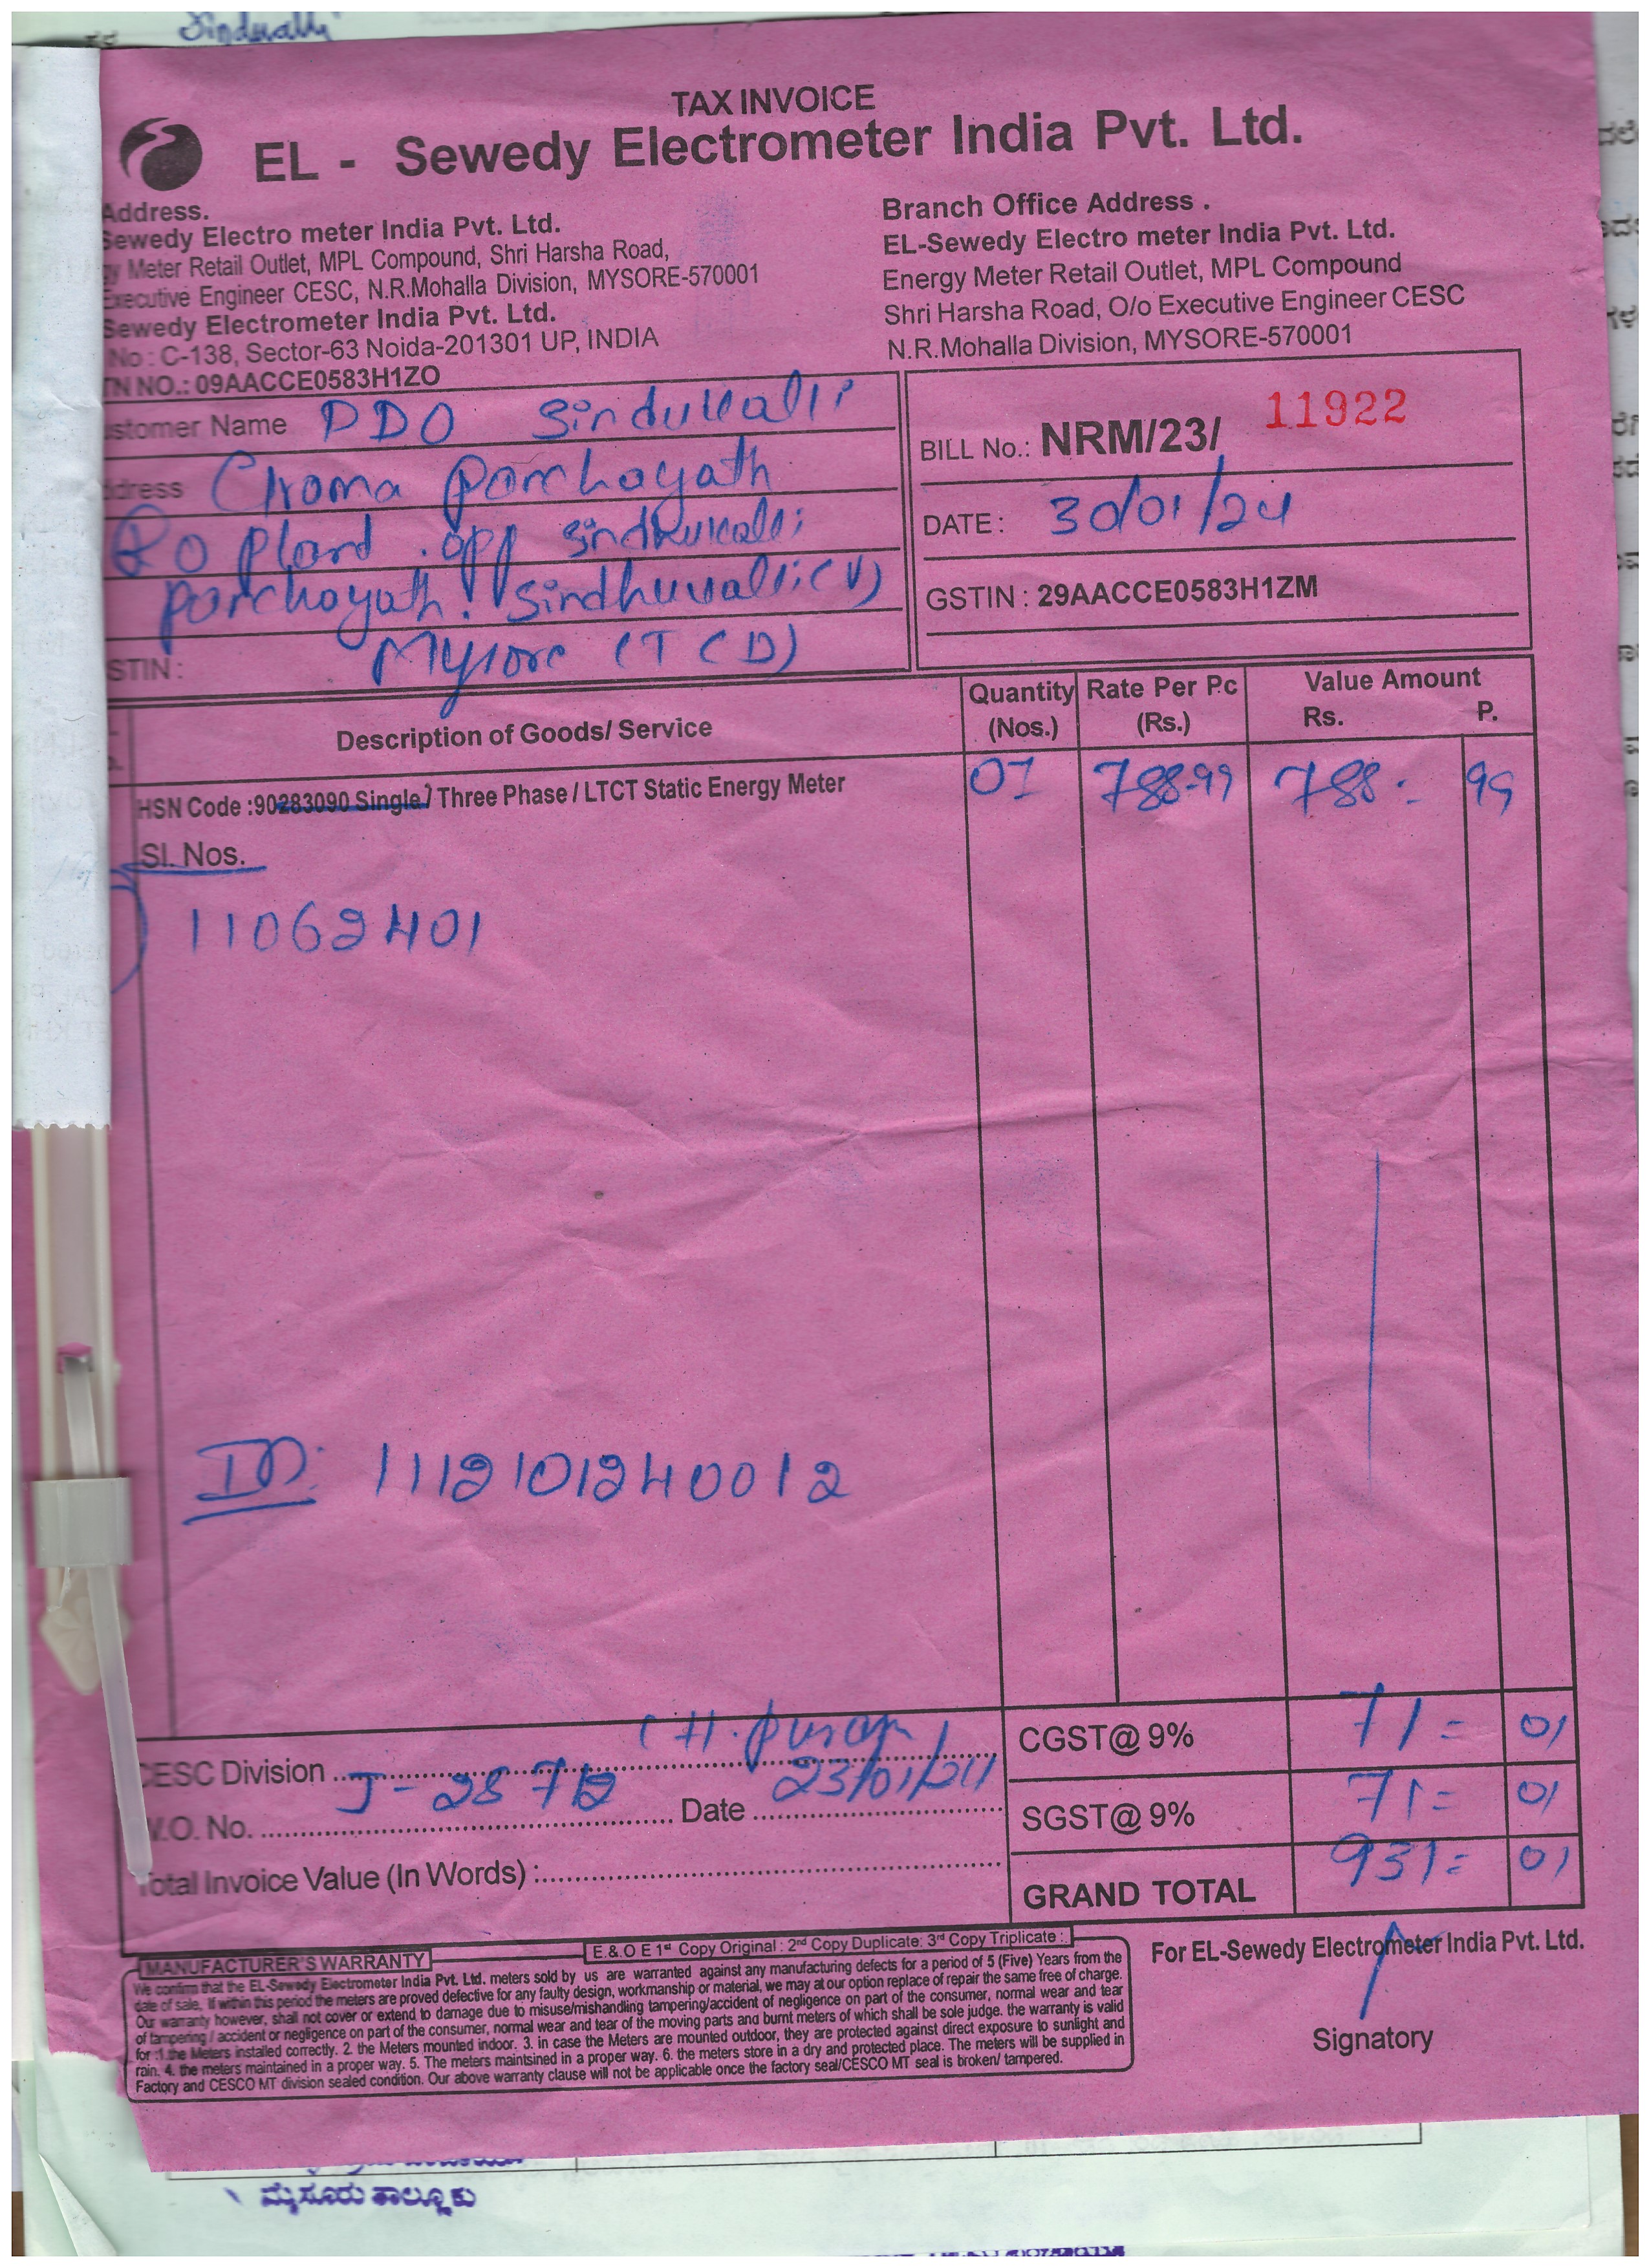 Sinduvalli
TAX INVOICE
EL - Sewedy Electrometer India Pvt. Ltd.
Address.
Sewedy Electro meter India Pvt. Ltd.
gy Meter Retail Outlet, MPL Compound, Shri Harsha Road,
Executive Engineer CESC, N.R.Mohalla Division, MYSORE-570001
Sewedy Electrometer India Pvt. Ltd.
No : C-138, Sector-63 Noida-201301 UP, INDIA
TN NO.: 09AACCE0583H1ZO
Branch Office Address .
EL-Sewedy Electro meter India Pvt. Ltd.
Energy Meter Retail Outlet, MPL Compound
Shri Harsha Road, O/o Executive Engineer CESC
N.R.Mohalla Division, MYSORE-570001
stomer Name PDO Sinduvalli
dress Grama panchayath
RO plant . opp sindhuvalli
panchayath. sindhuvalli (V)
STIN : Mysore (T (D)
BILL No.: NRM/23/ 11922
DATE : 30/01/24
GSTIN : 29AACCE0583H1ZM
Description of Goods/ Service
Quantity (Nos.)
Rate Per P.c (Rs.)
Value Amount
Rs. P.
HSN Code :90283090 Single / Three Phase / LTCT Static Energy Meter 01 788-99 788 :- 99
Sl. Nos.
11062401
ID: 1112101240012
CESC Division
W.O. No. J-28712 Date 23/01/24
Total Invoice Value (In Words) :
CGST@ 9% 71 = 01
SGST@ 9% 71 = 01
GRAND TOTAL 931 = 01
MANUFACTURER'S WARRANTY
E.& O E 1st Copy Original : 2nd Copy Duplicate: 3rd Copy Triplicate :
We confirm that the EL-Sewedy Electrometer India Pvt. Ltd. meters sold by us are warranted against any manufacturing defects for a period of 5 (Five) Years from the
date of sale, If within this period the meters are proved defective for any faulty design, workmanship or material, we may at our option replace of repair the same free of charge.
Our warranty however, shall not cover or extend to damage due to misuse/mishandling tampering/accident of negligence on part of the consumer, normal wear and tear
of tampering / accident or negligence on part of the consumer, normal wear and tear of the moving parts and burnt meters of which shall be sole judge. the warranty is valid
for :1.the Meters installed correctly. 2. the Meters mounted indoor. 3. in case the Meters are mounted outdoor, they are protected against direct exposure to sunlight and
rain. 4. the meters maintained in a proper way. 5. The meters maintsined in a proper way. 6. the meters store in a dry and protected place. The meters will be supplied in
Factory and CESCO MT division sealed condition. Our above warranty clause will not be applicable once the factory seal/CESCO MT seal is broken/ tampered.
For EL-Sewedy Electrometer India Pvt. Ltd.
Signatory
ಮೈಸೂರು ತಾಲ್ಲೂಕು